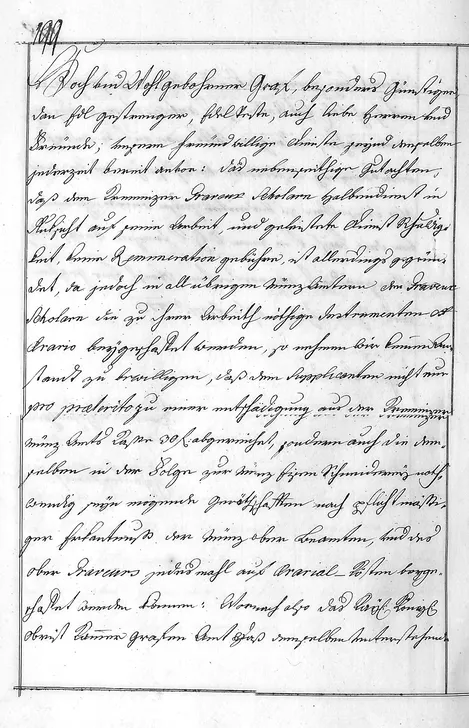 199
Hoch und Wohlgebohrner Graf, besonders Günstiger
dan Edl gestrenger, Edl Veste, auch liebe Herren und
Freünde; unsere freündwillige Dienste seynd denenselben
jederzeit bereit anvor: das nebenseithige Gutachten,
daß dem Kremnizer Graveur Scholaren Halbendienst in
Ansicht auf seine Arbeit, und geleistete Dienst Schuldig-
keit, keine Remuneration gebühre, ist allerdings gegrün-
det, da jedoch in all übrigen Münz Ämtern den Graveur
Scholaren die zu ihrer Arbeith nöthige Instrumenten ex
Ærario beygeschaffet werden, so nehmen wir keinen An-
stand zu bewilligen, daß dem Supplicanten nicht nur
pro præterito zu einer entschädigung aus der Kremnizer
Münz Amts Cassa 30 f. abgereichet, sondern auch die dem-
selben in der Folge zur Münz Eisen Schneiderey noth-
wendig seyn mögende Geräthschaften nach pflichtmäßi-
ger Erkantnuß der Münz ober Beamten, und des
ober Graveurs jedesmahl auf Ærarial-Kosten beyge-
schaffet werden können: Wornach also das Kayl. Königl.
obrist Kammer Grafen Amt das denenselben unterstehende